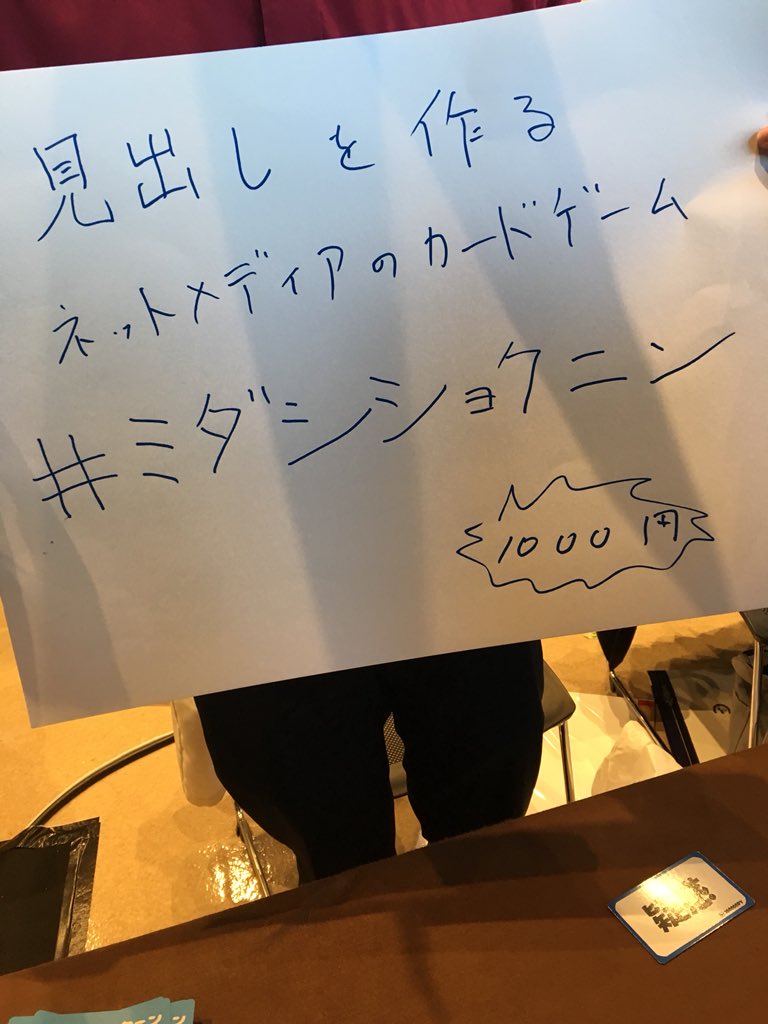 見出しを作る
ネットメディアのカードゲーム
#ミダシショクニン
1000円